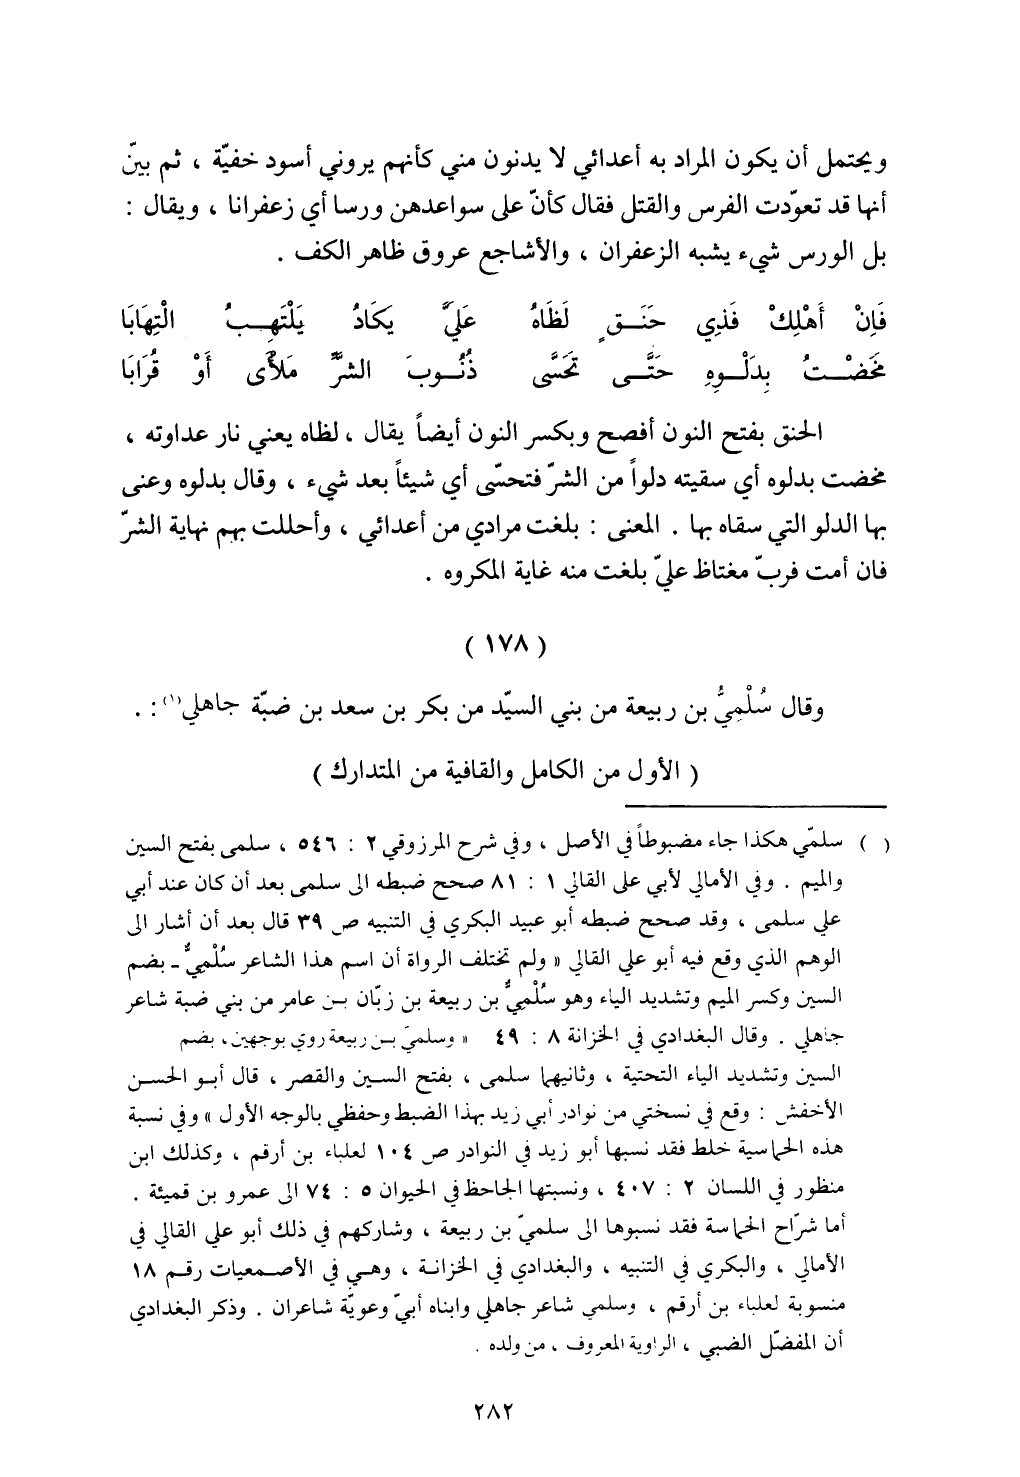 ويحتمل أن يكون المراد به أعدائي لا يدنون مني كأنهم يروني أسود خفيّة ، ثم بينّ
أنها قد تعوّدت الفرس والقتل فقال كأنّ على سواعدهن ورسا أي زعفرانا ، ويقال :
بل الورس شيء يشبه الزعفران ، والأشاجع عروق ظاهر الكف .
فَإِنْ أَهْلِكْ فَذِي حَنَـقٍ لَظَاهُ عَلَيَّ يَكَادُ يَلْتَهِـبُ الْتِهَابَا
مَخَضْـتُ بِدَلْـوِهِ حَتَّـى تَحَسَّى ذُنُـوبَ الشرَّ مَلأَى أَوْ قُرَابَا
الحنق بفتح النون أفصح وبكسر النون أيضاً يقال ، لظاه يعني نار عداوته ،
مخضت بدلوه أي سقيته دلواً من الشرّ فتحسّى أي شيئاً بعد شيء ، وقال بدلوه وعنى
بها الدلو التي سقاه بها . المعنى : بلغت مرادي من أعدائي ، وأحللت بهم نهاية الشرّ
فان أمت فربّ مغتاظ عليّ بلغت منه غاية المكروه .
( ١٧٨ )
وقال سُلْمِيُّ بن ربيعة من بني السيّد من بكر بن سعد بن ضبّة جاهلي(١) : .
( الأول من الكامل والقافية من المتدارك )
( ) سلمّي هكذا جاء مضبوطاً في الأصل ، وفي شرح المرزوقي ٢ : ٥٤٦ ، سلمى بفتح السين
والميم . وفي الأمالي لأبي على القالي ١ : ٨١ صحح ضبطه الى سلمى بعد أن كان عند أبي
علي سلمى ، وقد صحح ضبطه أبو عبيد البكري في التنبيه ص ٣٩ قال بعد أن أشار الى
الوهم الذي وقع فيه أبو علي القالي « ولم تختلف الرواة أن اسم هذا الشاعر سُلْمِيٌّ ـ بضم
السين وكسر الميم وتشديد الياء وهو سُلْمِيٌّ بن ربيعة بن زبّان بـن عامر من بني ضبة شاعر
جاهلي . وقال البغدادي في الخزانة ٨ : ٤٩ « وسلميّ بـن ربيعة روي بوجهين، بضم
السين وتشديد الياء التحتية ، وثانيهما سلمى ، بفتح السـين والقصر ، قال أبـو الحسـن
الأخفش : وقع في نسختي من نوادر أبي زيد بهذا الضبط وحفظي بالوجه الأول » وفي نسبة
هذه الحماسية خلط فقد نسبها أبو زيد في النوادر ص ١٠٤ لعلباء بن أرقم ، وكذلك ابن
منظور في اللسان ٢ : ٤٠٧ ، ونسبتها الجاحظ في الحيوان ٥ : ٧٤ الى عمرو بن قميئة .
أما شرّاح الحماسة فقد نسبوها الى سلميّ بن ربيعة ، وشاركهم في ذلك أبو علي القالي في
الأمالي ، والبكري في التنبيه ، والبغدادي في الخزانـة ، وهـي في الأصـمعيات رقـم ١٨
منسوبة لعلباء بن أرقم ، وسلمي شاعر جاهلي وابناه أبيّ وعويّة شاعران . وذكر البغدادي
أن المفضّل الضبي ، الراوية المعروف ، من ولده .
٢٨٢